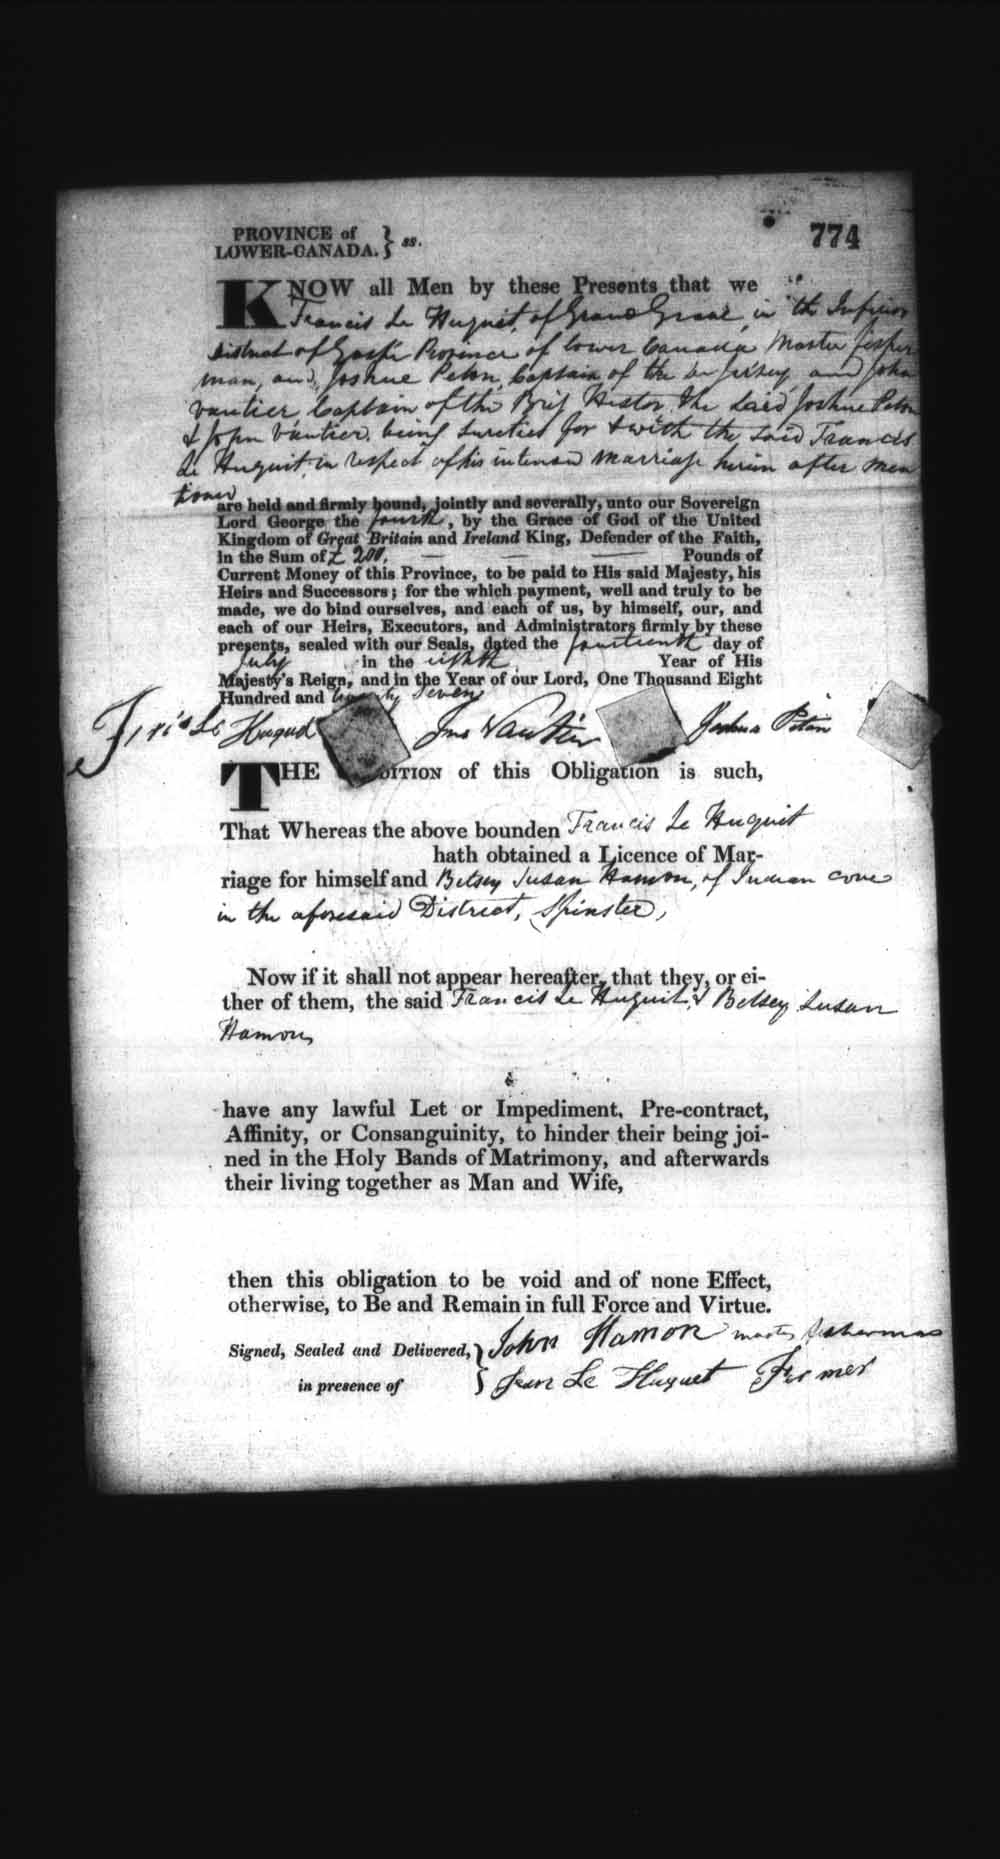 774
PROVINCE of
LOWER-CANADA. } ss.
KNOW all Men by these Presents that we
Francis Le Huquit, of Grand Greave, in the Inferior
District of Gaspé Province of lower Canada Master fisher
man, and Joshue Peton, Captain of the Jersey and John
Vautier Captain of the Brig Hector, the said Joshue Peton
& John Vautier being sureties for & with the said Francis
Le Huquit in respect of his intended marriage herein after men
tioned
are held and firmly bound, jointly and severally, unto our Sovereign
Lord George the fourth, by the Grace of God of the United
Kingdom of Great Britain and Ireland King, Defender of the Faith,
in the Sum of £ 200, — — — Pounds of
Current Money of this Province, to be paid to His said Majesty, his
Heirs and Successors; for the which payment, well and truly to be
made, we do bind ourselves, and each of us, by himself, our, and
each of our Heirs, Executors, and Administrators firmly by these
presents, sealed with our Seals, dated the fourteenth day of
July in the eighth Year of His
Majesty's Reign, and in the Year of our Lord, One Thousand Eight
Hundred and twenty Seven
Le Huqud Jno Vautier Joshua Peton
THE CONDITION of this Obligation is such,
That Whereas the above bounden Francis Le Huquit
hath obtained a Licence of Mar-
riage for himself and Betsey Susan Hamon, of Indian cove
in the aforesaid District, Spinster,
Now if it shall not appear hereafter, that they, or ei-
ther of them, the said Francis Le Huquit & Betsey Susan
Hamon,
have any lawful Let or Impediment, Pre-contract,
Affinity, or Consanguinity, to hinder their being joi-
ned in the Holy Bands of Matrimony, and afterwards
their living together as Man and Wife,
then this obligation to be void and of none Effect,
otherwise, to Be and Remain in full Force and Virtue.
Signed, Sealed and Delivered, } John Hamon master fisherman
in presence of } Jean Le Huquet Fermer